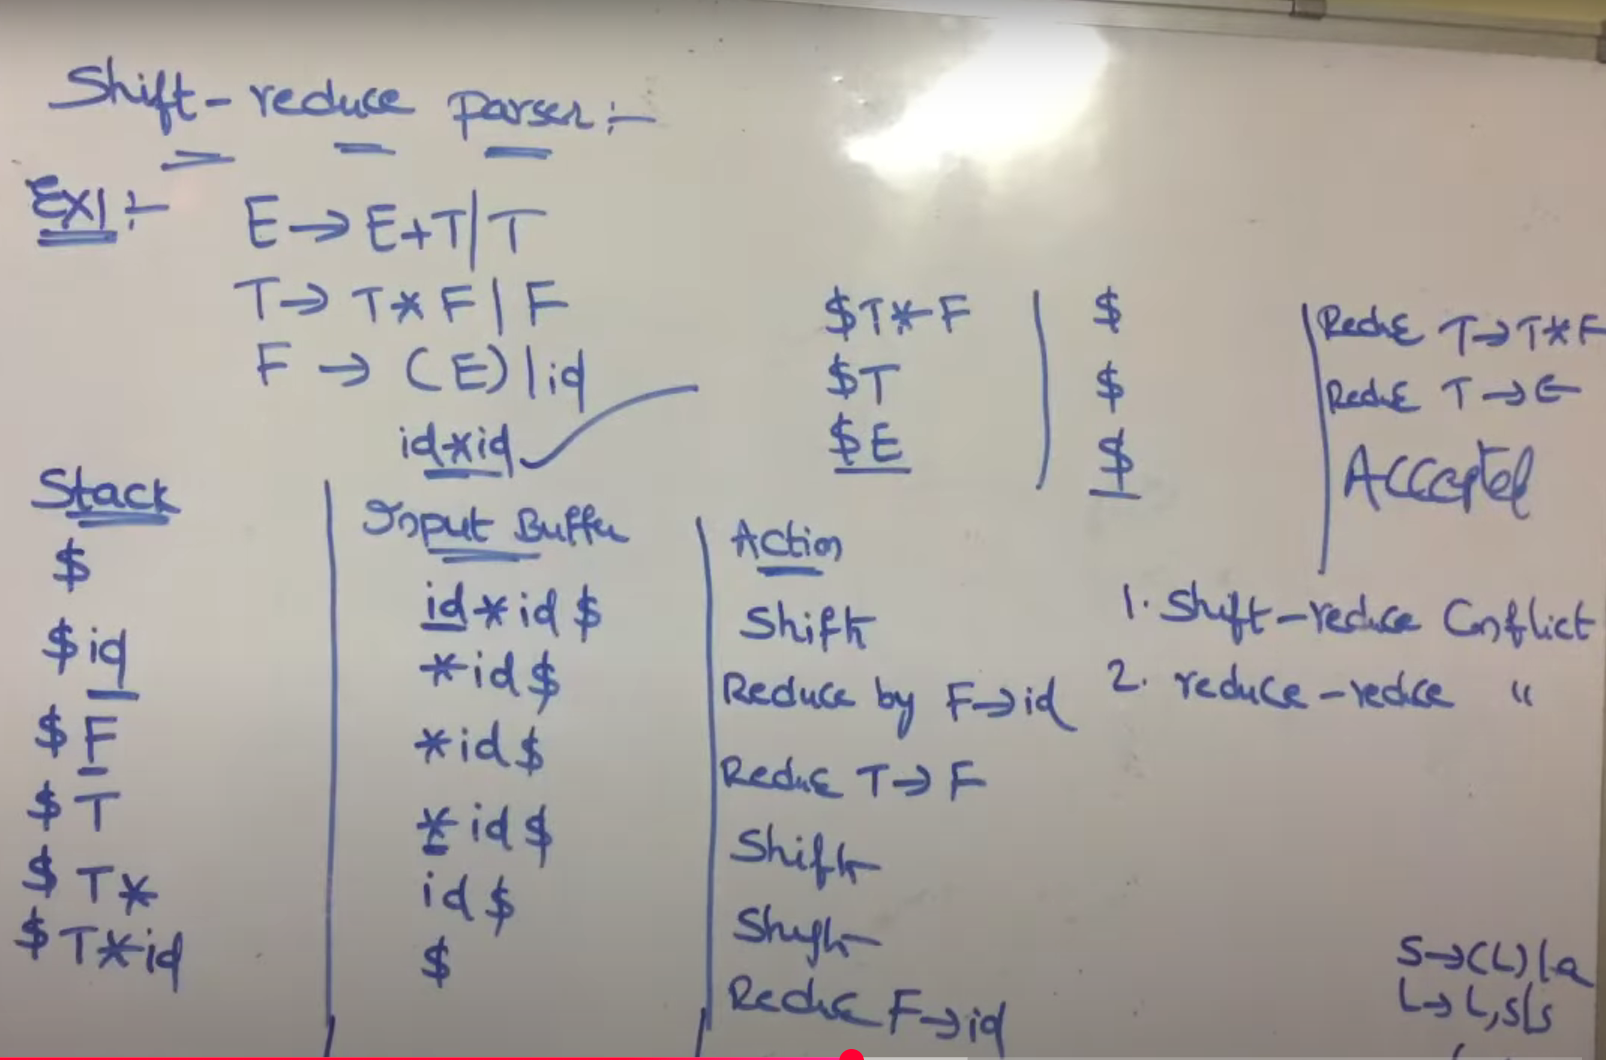 Shift-reduce parser:-
EX1:- E→E+T|T
T→T*F|F
F→(E)|id
id*id
Stack | Input Buffer | Action
$ | id*id$ | Shift
$id | *id$ | Reduce by F→id
$F | *id$ | Reduce T→F
$T | *id$ | Shift
$T* | id$ | Shift
$T*id | $ | Reduce F→id
$T*F | $ | Reduce T→T*F
$T | $ | Reduce T→E
$E | $ | Accepted
1. Shift-reduce Conflict
2. reduce-reduce "
S→(L)|a
L→L,S|S